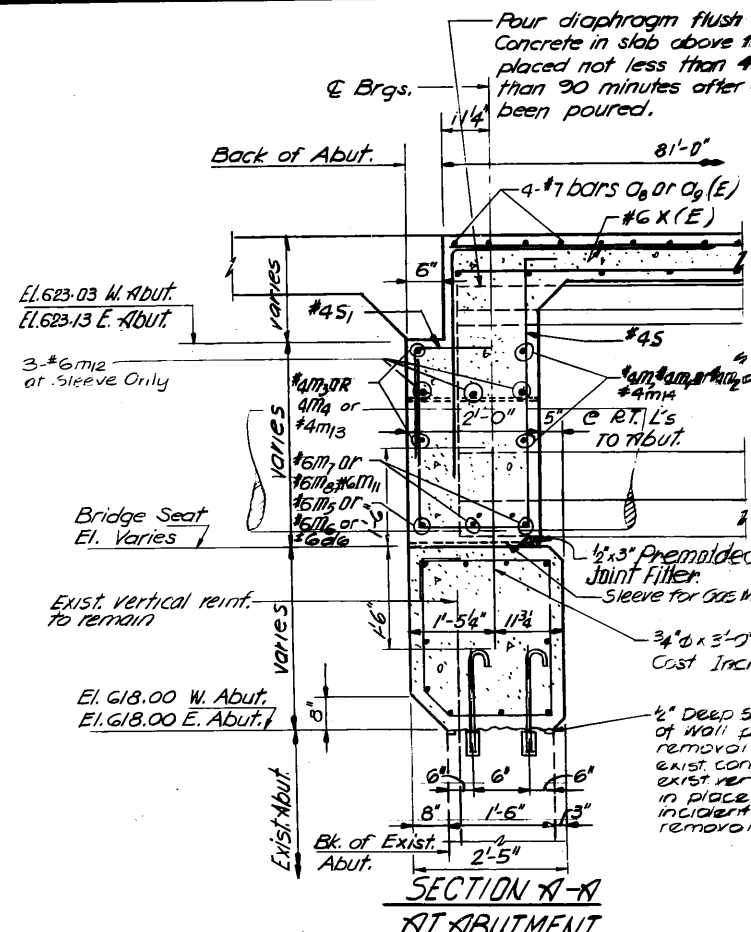 Pour diaphragm flush
Concrete in slab above
placed not less than 4
than 90 minutes after
been poured.
℄ Brgs.
11¼"
Back of Abut.
81'-0"
4-#7 bars a8 or a9 (E)
#6 X (E)
6"
varies
El. 623.03 W. Abut.
El. 623.13 E. Abut.
#4S1
#4S
3-#6m12
at Sleeve Only
#4m3 OR
4m4 or
#4m13
#4m14
2'-0"
5"
@ RT. L's
TO Abut.
varies
#6m7 or
#6m8, #6m11
#6m5 or
#6m6 or
Bridge Seat
El. Varies
½"x3" Premolded
Joint Filler
Sleeve for Gas M
Exist. vertical reinf.
to remain
1'-6"
1'-5¼"
11¾"
¾"ϕ x 3'-0"
Cost Incl
varies
El. 618.00 W. Abut.
El. 618.00 E. Abut.
8"
½" Deep S
of Wall
removal
exist. con
exist. ver
in place
incident
removal
6"
6"
6"
8"
1'-6"
3"
Exist Abut.
Bk. of Exist.
Abut.
2'-5"
SECTION A-A
AT ABUTMENT